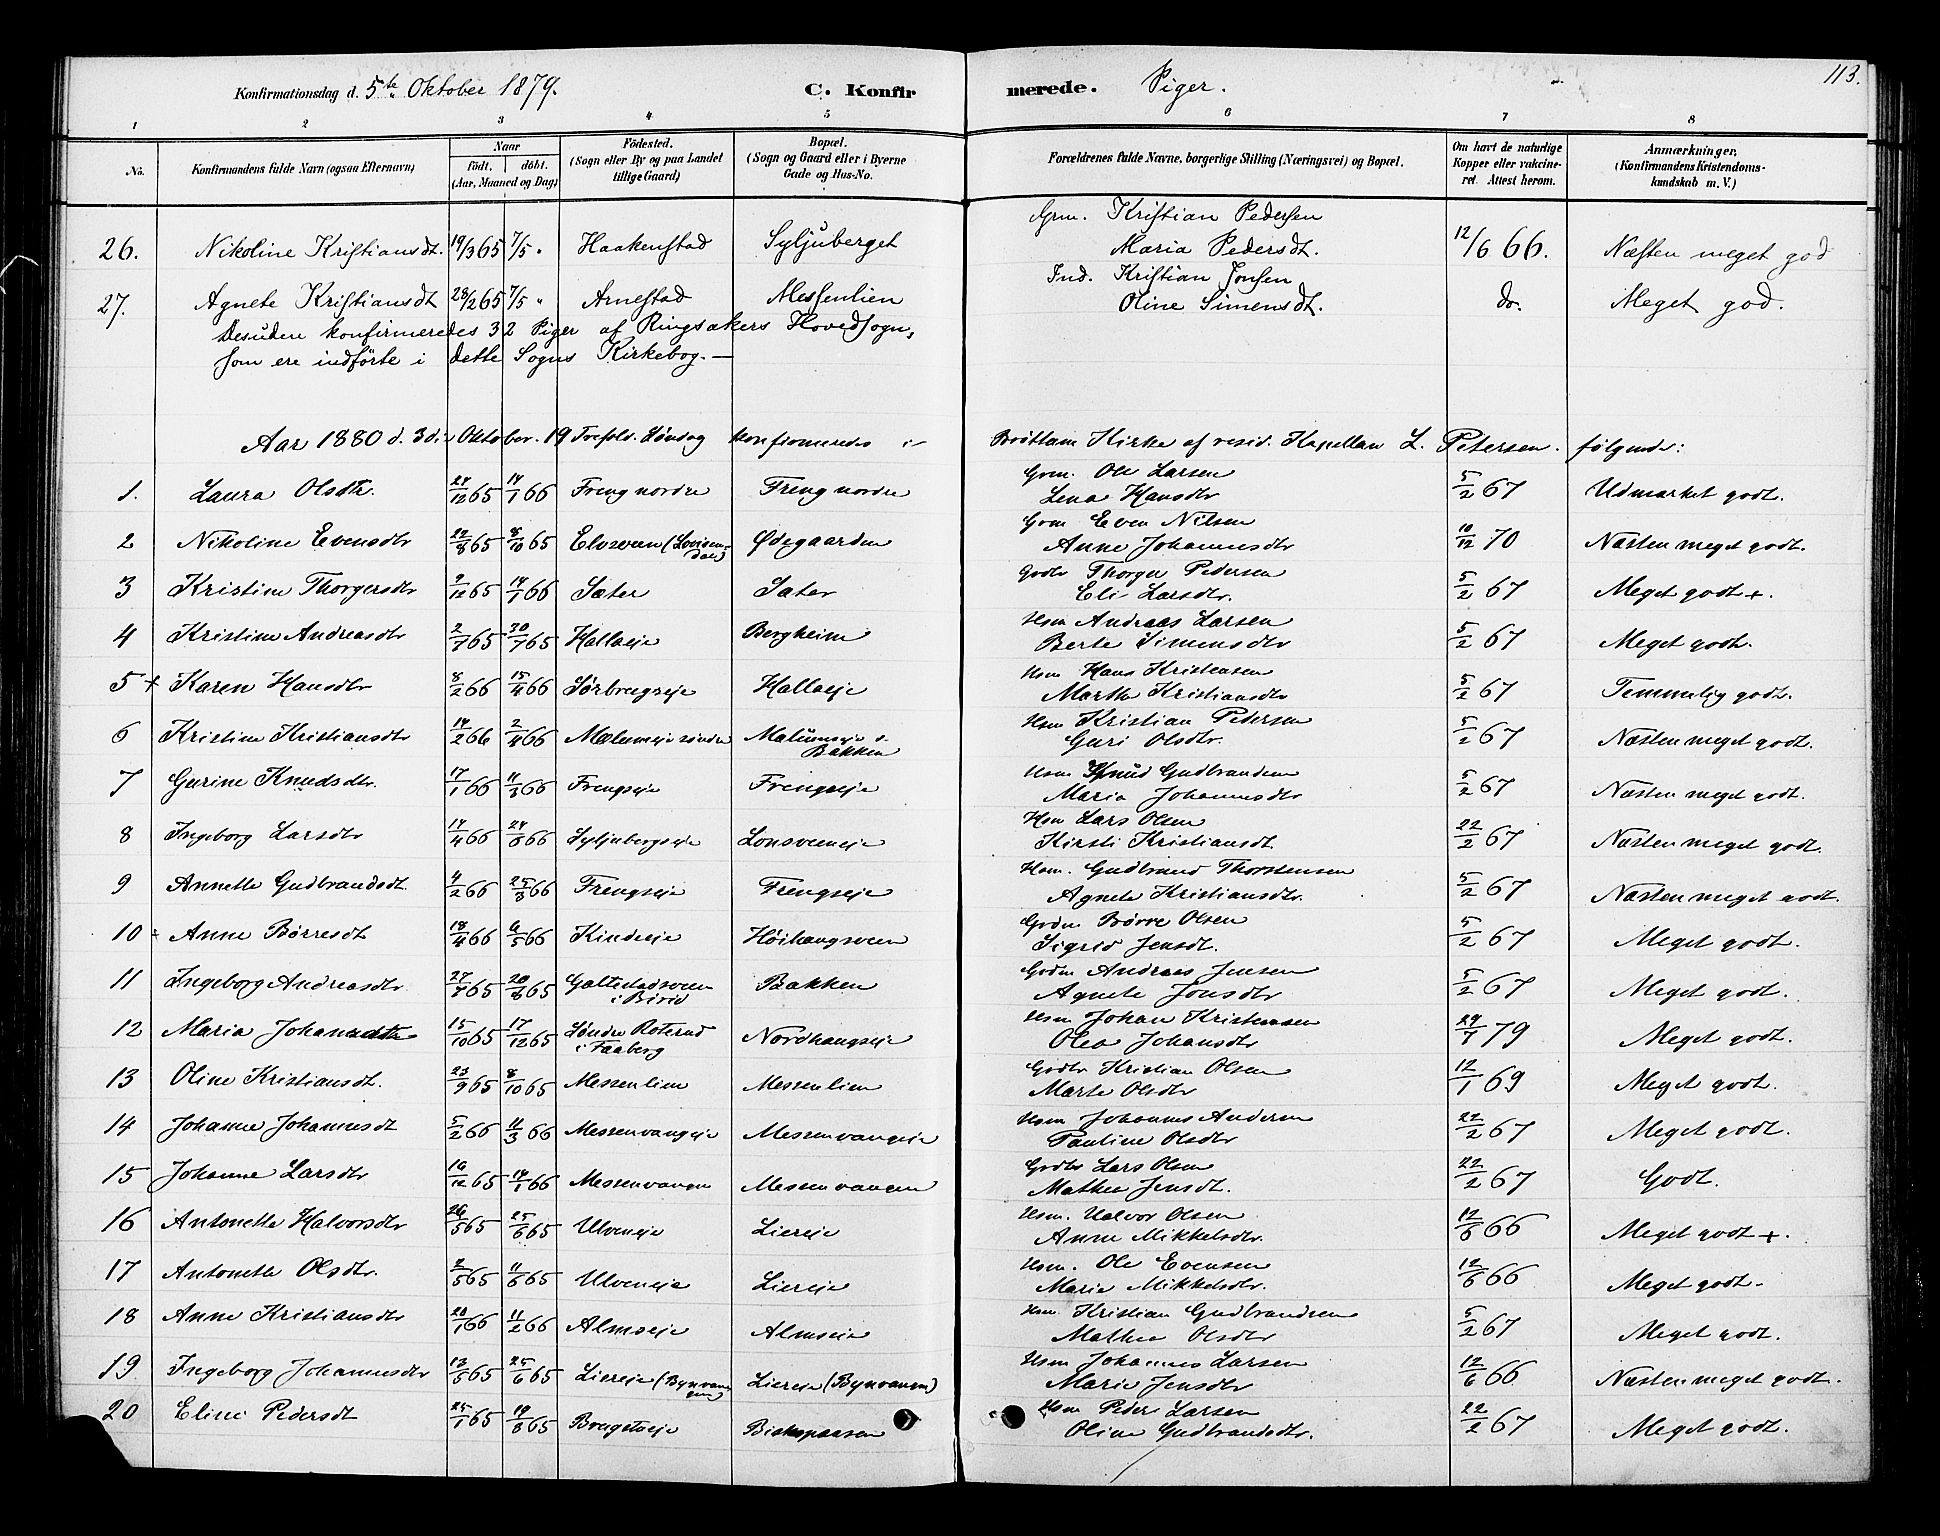 113.
Konfirmationsdag d. 5te Oktober 1879. C. Konfirmerede. Piger.
1 2 3 4 5 6 7 8
No. Konfirmandens fulde Navn (ogsaa Efternavn) Naar født, døbt. (Aar, Maaned og Dag) Fødested. (Sogn eller By og paa Landet tillige Gaard) Bopæl. (Sogn og Gaard eller i Byerne Gade og Hus-No. Forældrenes fulde Navne, borgerlige Stilling (Næringsvei) og Bopæl. Om havt de naturlige Kopper eller vakcineret. Attest herom. Anmærkninger, (Konfirmandens Kristendomskundskab m. V.)
26. Nikoline Kristiansdt. 19/3 65 7/5 " Haakenstad Syljuberget Grm. Kristian Pedersen Maria Pedersdt. 12/6 66. Næsten meget god
27. Agnete Kristiansdt 28/2 65 7/5 " Arnestad Messenlien Ind. Kristian Jonsen Oline Simensdt. do. Meget god.
Desuden konfirmeredes 32 Piger af Ringsakers Hovedsogn,
som ere indførte i dette Sogns Kirkebog. —
Aar 1880 d. 3die Oktober. 19 Trefold. Søndag konfirmeredes i Brøttum Kirke af resid. Kapellan L. Petersen. følgende:
1. Laura Olsdtr. 27/12 65 14/1 66 Freng nordre Freng nordre Grm. Ole Larsen Lena Hansdtr 5/2 67 Udmærket godt.
2 Nikoline Evensdtr 22/8 65 8/10 65 Elvsveen (Lovisendal) Ødegaarden Grm Even Nilsen Anne Johannesdtr 10/12 70 Næsten meget godt.
3 Kristine Thorgersdtr 9/12 65 14/1 66 Sæter Sæter Godbr Thorger Pedersen Eli Larsdtr. 5/2 67 Meget godt +.
4 Kristine Andreasdtr 2/7 65 30/7 65 Hallseje Bergheim Hsm Andreas Larsen Berte Simensdtr 5/2 67 Meget godt.
5 + Karen Hansdtr 8/2 66 15/4 66 Sørbrugseje Hallseje Hsm Hans Kristensen Marthe Kristiansdtr 5/2 67 Temmelig godt.
6 Kristine Kristiansdtr 14/2 66 2/4 66 Mælumseje søndre Mælumseje s. Bakken Hsm Kristian Pedersen Guri Olsdtr. 5/2 67 Næsten meget godt.
7 Gurine Knudsdtr. 17/1 66 11/3 66 Frengseje Frengseje Hsm Knud Gudbrandsen Maria Johannesdtr 5/2 67 Næsten meget godt.
8 Ingeborg Larsdtr 14/4 66 24/5 66 Syljubergseje Lonsveeneje Hsm Lars Olsen Kirsti Kristiansdt. 22/2 67 Næsten meget godt.
9 Annette Gudbrandsdt. 4/2 66 25/3 66 Frengseje Frengseje Hsm. Gudbrand Thorstensen Agnete Kristiansdtr. 5/2 67 Næsten meget godt.
10 + Anne Børresdt 18/4 66 6/5 66 Kindseje Høihaugsveen Grdm Børre Olsen Sigrid Jensdt. 5/2 67 Meget godt.
11 Ingeborg Andreasdtr 27/7 65 20/8 65 Galtestadsveen i Birid Bakken Grdm Andreas Jensen Agnete Jonsdtr 5/2 67 Meget godt.
12 Maria Johansdtr 15/10 65 17/12 65 Søndre Roterud i Faaberg Nordhaugseje Hsm Johan Kristensen Olea Johansdtr 29/7 79 Meget godt.
13 Oline Kristiansdt. 23/9 65 8/10 65 Messenlien Messenlien Godbr Kristian Olsen Marte Olsdtr 12/1 69 Meget godt.
14 Johanne Johannesdt 5/2 66 11/3 66 Messenvangeje Messenvangeje Hsm Johannes Andersen Pauline Olsdtr 22/2 67 Meget godt.
15 Johanne Larsdtr 16/12 65 14/1 66 Messenvangen Messenvangen Godbr Lars Olsen Mathea Jensdt. 22/2 67 Godt.
16 Antonette Halvorsdtr 26/5 65 25/6 65 Ulveneje Liereje Hsm. Halvor Olsen Anne Mikkelsdtr. 12/6 66 Meget godt +.
17 Antonette Olsdtr. 2/5 65 11/6 65 Ulveneje Liereje Hsm. Ole Evensen Marie Mikkelsdtr. 12/6 66 Meget godt.
18 Anne Kristiansdtr 20/1 66 11/2 66 Almseje Almseje Hsm. Kristian Gudbrandsen Mathea Olsdtr 5/2 67 Meget godt.
19 Ingeborg Johannesdtr 13/5 65 25/6 65 Liereje (Bynvangen) Liereje (Bynvangen) Hsm Johannes Larsen Marie Jensdtr 12/6 66 Næsten meget godt.
20 Eline Pedersdt 25/1 65 19/3 65 Brugstveje Hsm Peder Larsen Oline Gudbrandsdtr. 22/2 67 Meget godt.